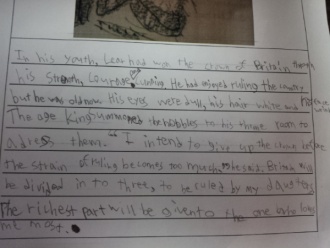 In his youth, Lear had won the crown of Britain through
his Strength, Courage, cunning. He had enjoyed ruling the country
but he was old now. His eyes were dull, his hair white and
The age King summoned the nobbles to his throne room to
adress them. "I intend to give up the crown before
the strain of ruling becomes too mutch," he said. Britain will
be divided in to three, to be ruled by my daugters
The richest part will be given to the one who loves
me most.